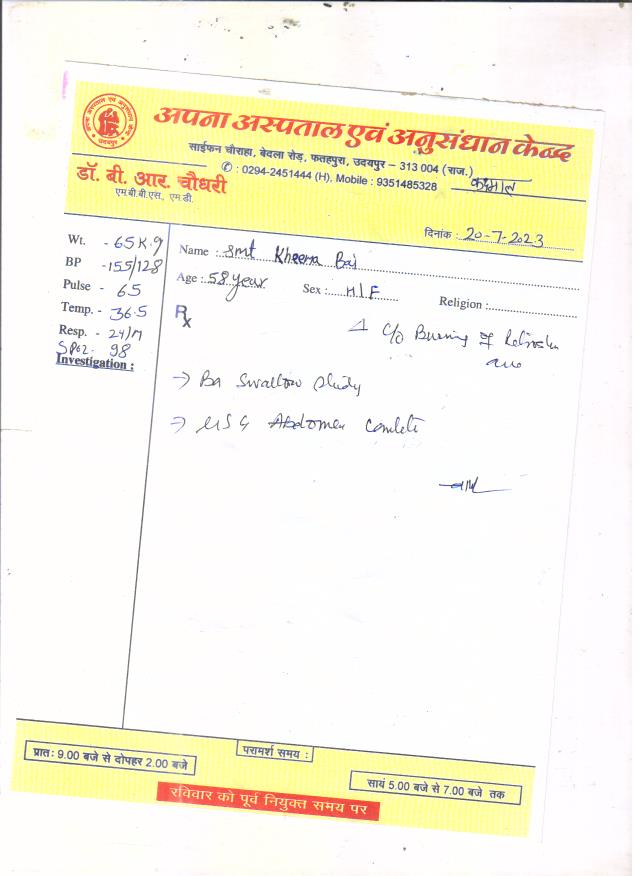 अपना अस्पताल एवं अनुसंधान केन्द्र
उदयपुर
अपना अस्पताल एवं अनुसंधान केन्द्र
साईफन चौराहा, बेदला रोड़, फतहपुरा, उदयपुर – 313 004 (राज.)
✆ : 0294-2451444 (H), Mobile : 9351485328
डॉ. बी. आर. चौधरी
एम.बी.बी.एस., एम.डी.
दिनांक : 20-7-2023
Wt. - 65 K.g
BP -155/128
Pulse - 65
Temp. - 36.5
Resp. - 24/M
SPO2. 98
Investigation :
Name : Smt Kheema Bai
Age : 58 year Sex : M/F Religion :
Rx
Δ c/o Burning of
→ Ba Swallow study
→ USG Abdomen comlete
परामर्श समय :
प्रातः 9.00 बजे से दोपहर 2.00 बजे
सायं 5.00 बजे से 7.00 बजे तक
रविवार को पूर्व नियुक्त समय पर